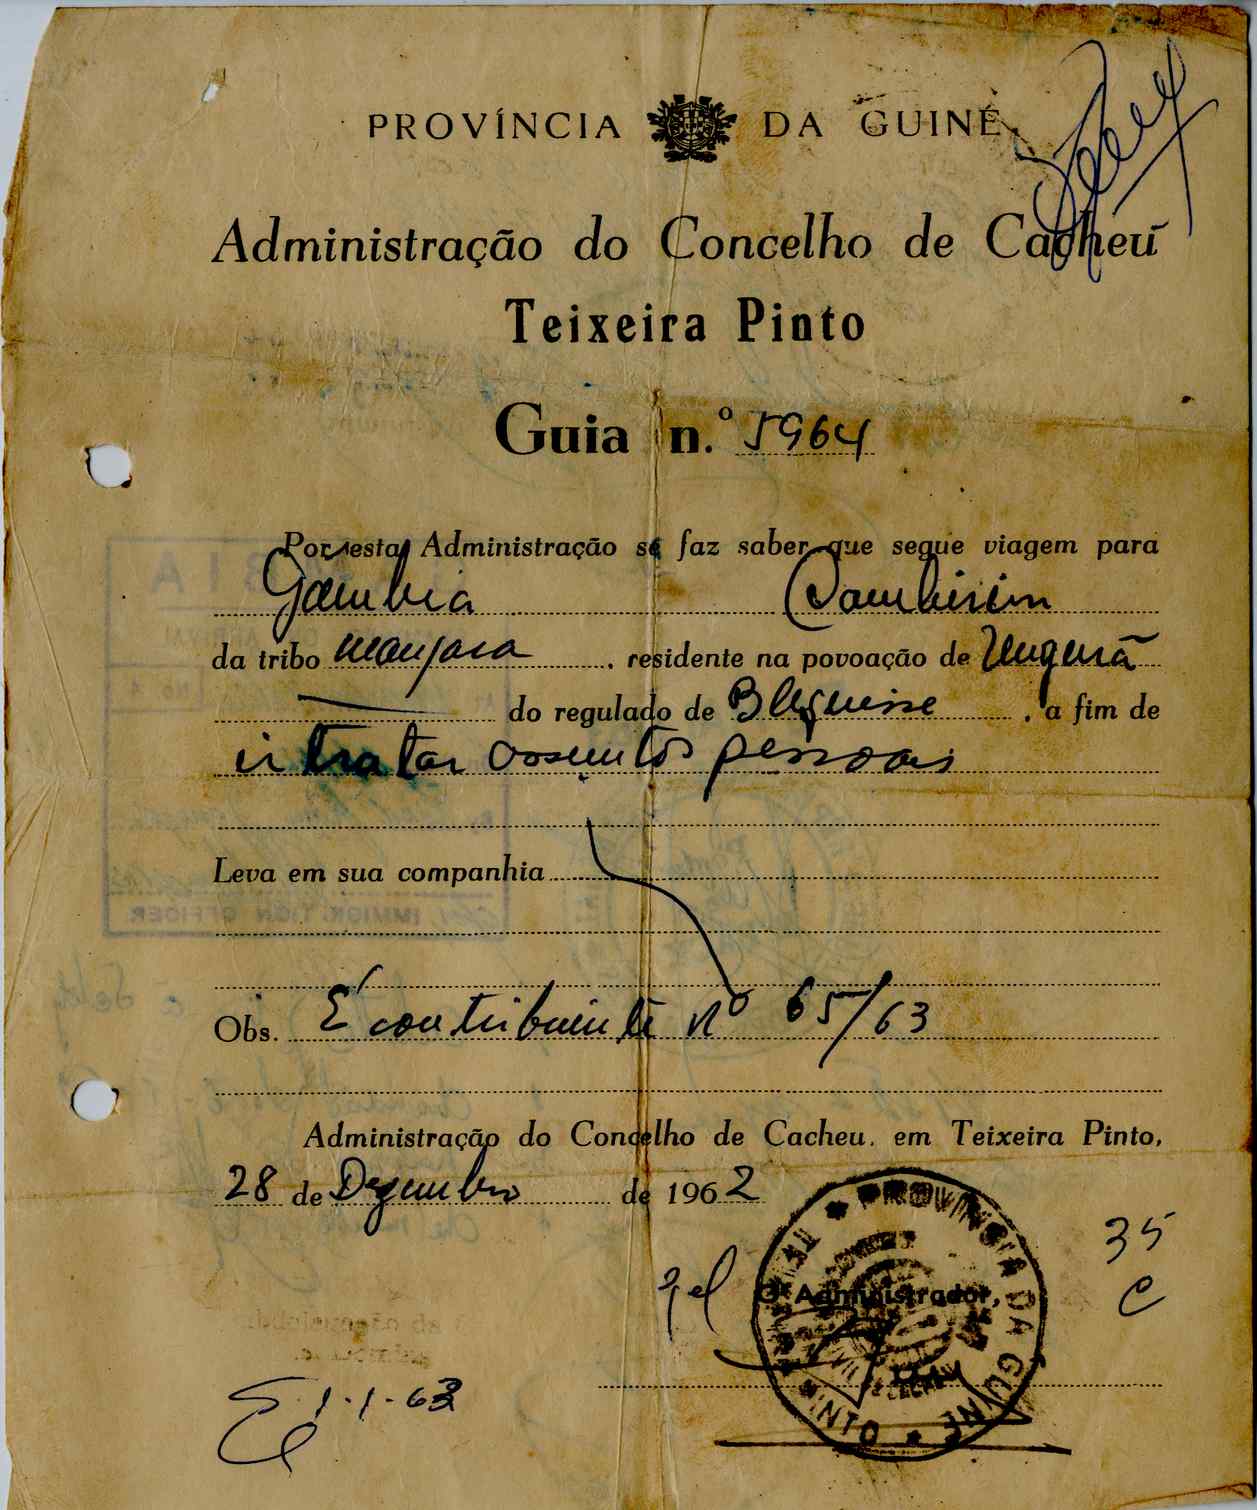 PROVÍNCIA DA GUINÉ
Administração do Concelho de Cacheu
Teixeira Pinto
Guia n.º 5964
Por esta Administração se faz saber que segue viagem para
Gâmbia Cambirim
da tribo manjaca, residente na povoação de
do regulado de, a fim de
ir tratar assuntos pessoais
Leva em sua companhia
Obs. É contribuinte nº 65/63
Administração do Concelho de Cacheu, em Teixeira Pinto,
28 de Dezembro de 1962
35
C
O Administrador,
PROVÍNCIA DA GUINÉ
PINTO
1-1-63
IMMIGRATION OFFICER